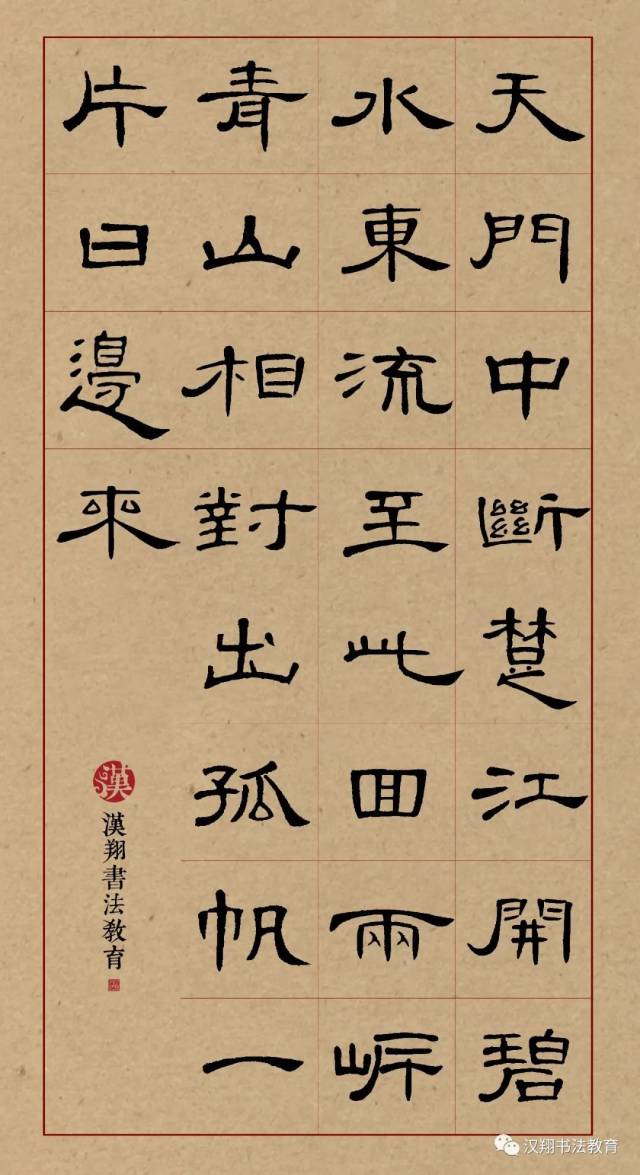 天門中斷楚江開碧
水東流至此回兩岸
青山相對出孤帆一
片日邊來
漢
漢翔書法教育
汉翔书法教育